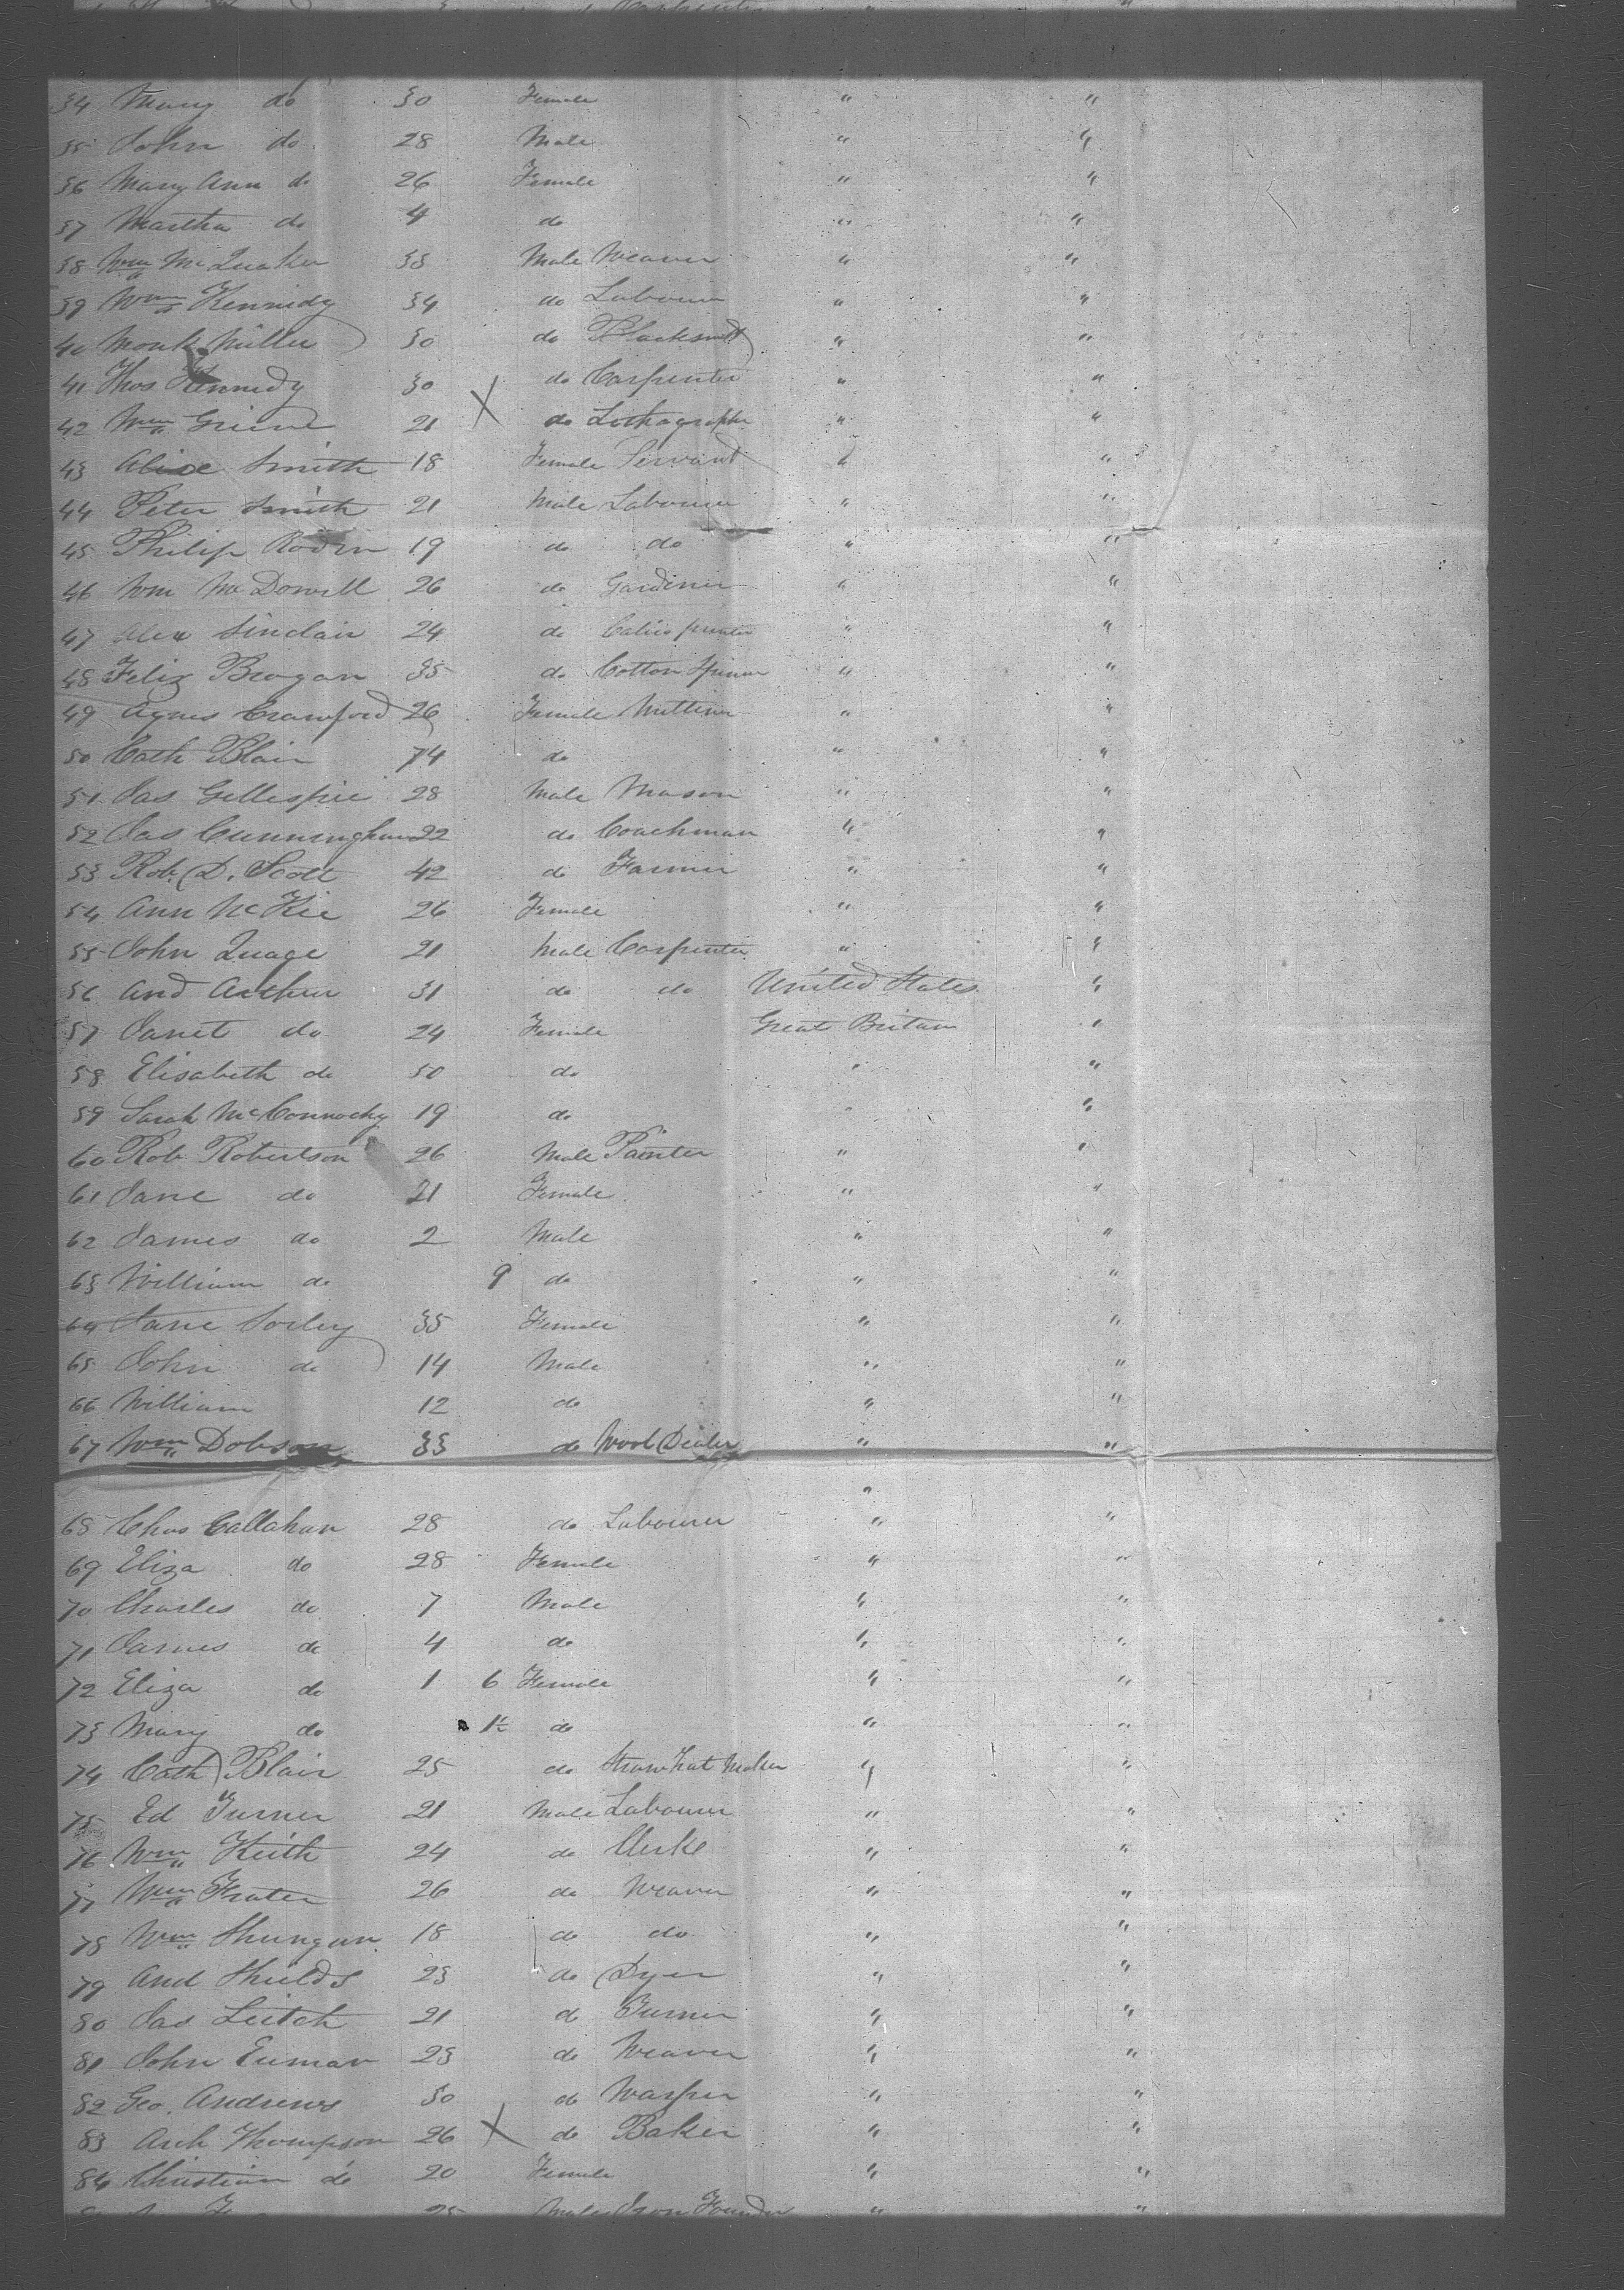 34 Mary do 30 Female " "
35 John do 28 Male " "
36 Mary Ann do 26 Female " "
37 Martha do 4 do " "
38 Wm McQuaker 35 Male Weaver " "
39 Wm Kennidy 34 do Labourer " "
40 Monk Miller 30 do Blacksmith " "
41 Thos Kennedy 30 do Carpenter " "
42 Wm Grieve 21 X do Lothographr " "
43 Alice Smith 18 Female Servant " "
44 Peter Smith 21 Male Labourer " "
45 Philip 19 do do " "
46 Wm McDowell 26 do Gardiner " "
47 Alex Sinclair 24 do Calico printer " "
48 Felix Brogan 35 do Cotton Spinner " "
49 Agnes Crawford 26 Female " "
50 Cath Blair 74 do " "
51 Jas Gillespie 28 Male Mason " "
52 Jas Cunningham 22 do Coachman " "
53 Rob. D. Scott 42 do Farmer " "
54 Ann McKie 26 Female " "
55 John Quage 21 Male Carpenter " "
56 And Arthur 31 do do United States "
57 Janet do 24 Female Great Britain "
58 Elisabeth do 50 do " "
59 Sarah McConnochy 19 do " "
60 Rob Robertson 26 Male Painter " "
61 Jane do 21 Female " "
62 James do 2 Male " "
63 William do 9 do " "
64 Jane Sorley 35 Female " "
65 John do 14 Male " "
66 William 12 do " "
67 Wm Dobson 33 do Wool Dealer " "
"
68 Chas Callahan 28 do Labourer " "
69 Eliza do 28 Female " "
70 Charles do 7 Male " "
71 James do 4 do " "
72 Eliza do 1 6 Female " "
73 Mary do 1½ do " "
74 Cath Blair 25 do Straw hat Maker " "
75 Ed Turner 21 Male Labourer " "
76 Wm Keith 24 do Clerke " "
77 Wm Frater 26 do Weaver " "
78 Wm Shungun 18 do do " "
79 And Shields 23 do Dyer " "
80 Jas Leitch 21 do Turner " "
81 John 23 do Weaver " "
82 Geo. Andrews 30 do Warper " "
83 Arch Thompson 26 X do Baker " "
84 Christian do 20 Female " "
25 Male Iron Founder " "